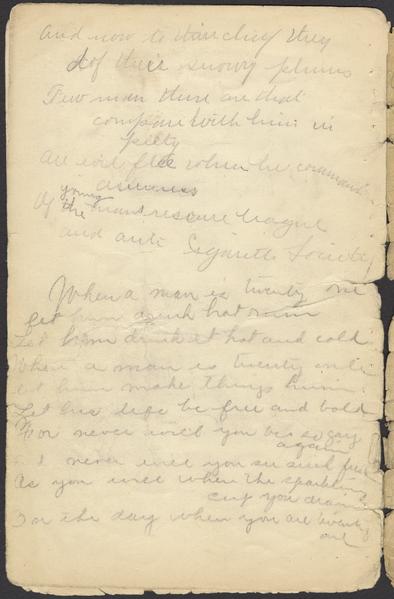 And now to Hanchey they
of their snowy plums
Few man there are that
compare with him in
piety
All evil flee when he commands
Of the young mans rescue league
and anti Cigarette Society
When a man is twenty one
Let him drink hot rum
Let him drink it hot and cold
When a man is twenty one
Let him make things hum
Let his life be free and bold
For never will you be so gay
again
never will you su such
As you will when the sparkling
cup you drain
On the day when you are twenty
one